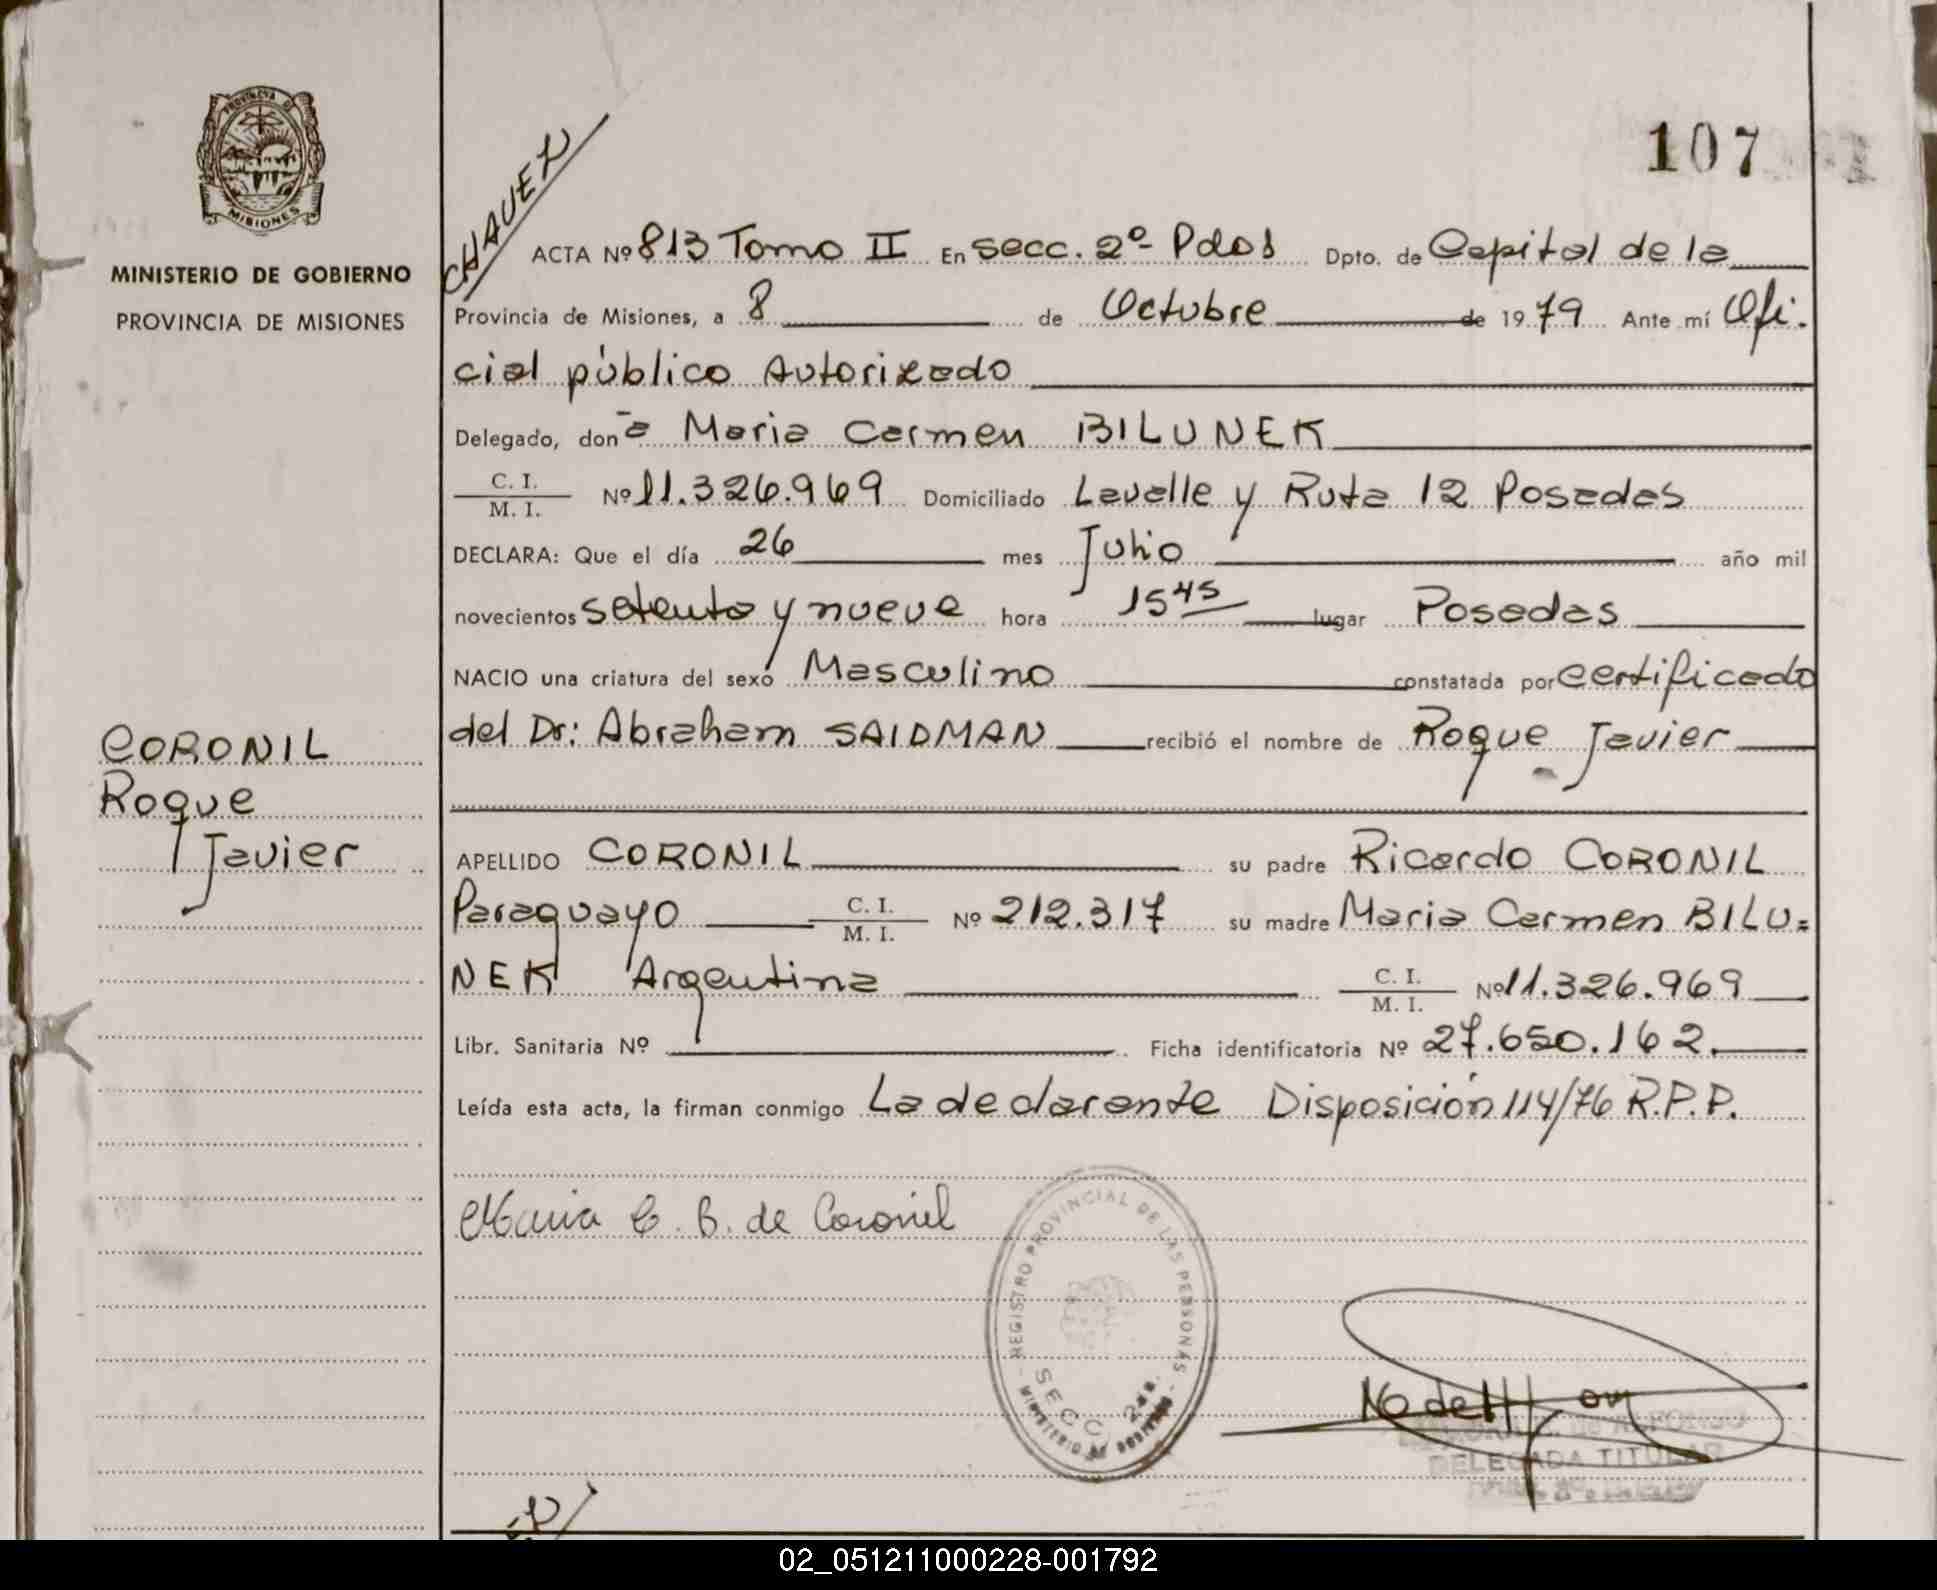 107
PROVINCIA DE
MISIONES
MINISTERIO DE GOBIERNO
PROVINCIA DE MISIONES
CHAVEZ
ACTA Nº 813 Tomo II En secc. 2º Pdas Dpto. de Capital de la
Provincia de Misiones, a 8 de Octubre de 1979 Ante mí Ofi-
cial público Autorizado
Delegado, doña Maria Carmen BILUNEK
C. I.
M. I. Nº 11.326.969 Domiciliado Lavalle y Ruta 12 Posadas
DECLARA: Que el día 26 mes Julio año mil
novecientos setenta y nueve hora 15 45 lugar Posadas
NACIO una criatura del sexo Masculino constatada por certificado
del Dr: Abraham SAIDMAN recibió el nombre de Roque Javier
CORONIL
Roque
Javier
APELLIDO CORONIL su padre Ricardo CORONIL
Paraguayo C. I. M. I. Nº 212.317 su madre Maria Carmen BILU=
NEK Argentina C. I. M. I. Nº 11.326.969
Libr. Sanitaria Nº Ficha identificatoria Nº 27.650.162.
Leída esta acta, la firman conmigo La declarante Disposición 114/76 R.P.P.
Maria C. B. de Coronil
REGISTRO PROVINCIAL DE LAS PERSONAS
SECC. 2da.
MINISTERIO DE GOBIERNO
DELEGADA TITULAR
02_051211000228-001792